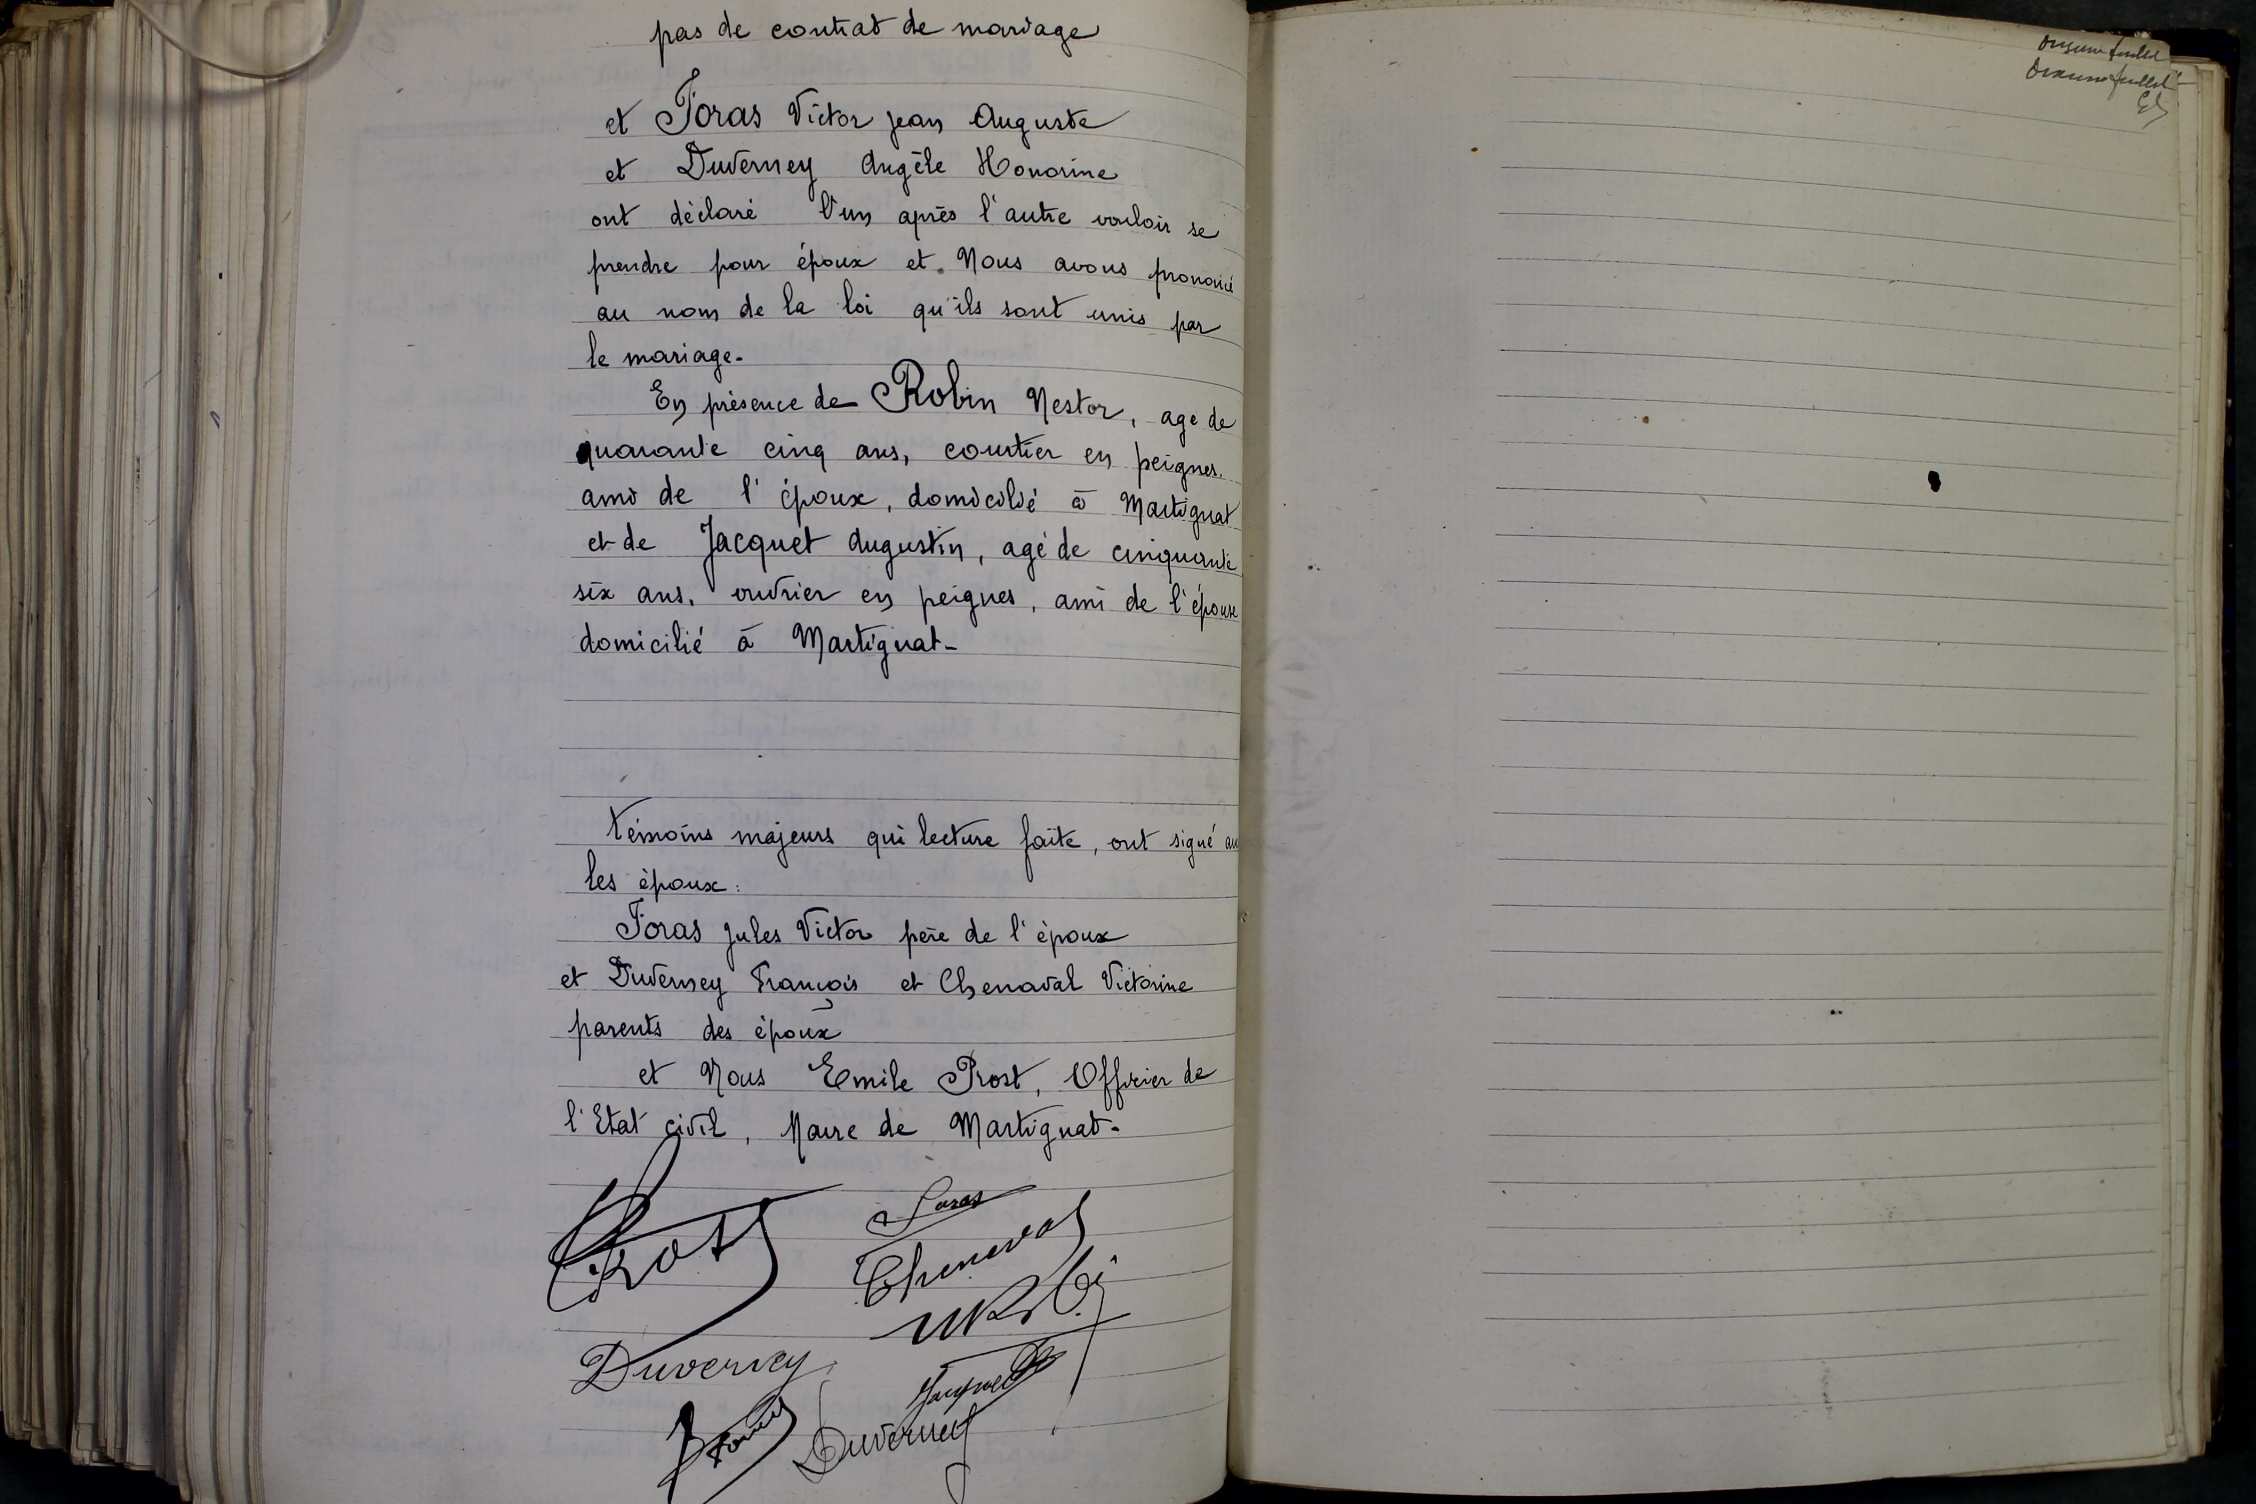 pas de contrat de mariage
et Foras Victor Jean Auguste
et Duverney Angèle Honorine
ont déclaré l'un après l'autre vouloir se
prendre pour époux et Nous avons prononcé
au nom de la loi qu'ils sont unis par
le mariage.
En présence de Robin Nestor, age de
quarante cinq ans, courtier en peignes.
ami de l'époux, domicilié à Martignat
et de Jacquet Augustin, agé de cinquante
six ans, ouvrier en peignes, ami de l'épouse
domicilié à Martignat-
témoins majeurs qui lecture faite, ont signé
les époux:
Foras Jules Victor père de l'époux
et Duverney François et Chenaval Victorine
parents des époux
et Nous Emile Prost, Officier de
l'Etat civil, Maire de Martignat-
Prost
Foras
Cheneval
NRobin
Duverney
Jacquet
Duverney
feuillet
feuillet